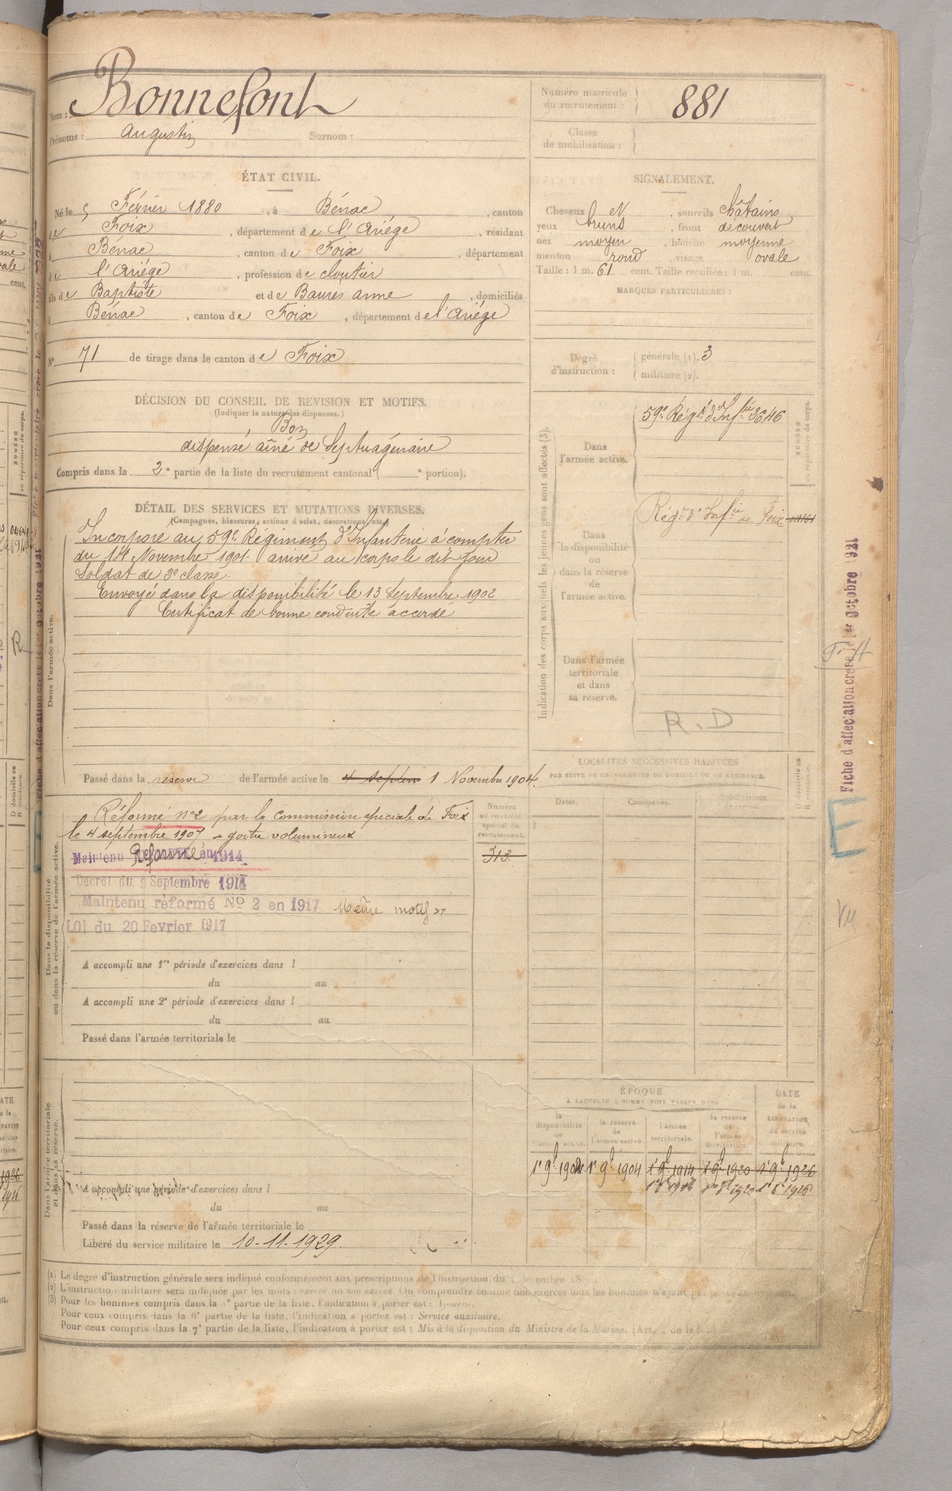 Nom : Bonnefont
Prénoms : Augustin Surnom :
Numéro matricule
du recrutement : 881
Classe
de mobilisation :
ÉTAT CIVIL.
Né le 5 Février 1880, à Bénac, canton
de Foix, département de l'Ariège, résidant
à Bénac, canton de Foix, département
de l'Ariège, profession de cloutier
fils de Baptiste et de Baures anne, domiciliés
à Bénac, canton de Foix, département de l'Ariège
N° 71 de tirage dans le canton de Foix
SIGNALEMENT.
Cheveux et, sourcils châtains
yeux bruns, front découvert
nez moyen, bouche moyenne
menton rond, visage ovale
Taille : 1 m. 61 cent. Taille rectifiée : 1 m. cent.
MARQUES PARTICULIÈRES :
Degré
d'instruction :
générale (1). 3
militaire (2).
DÉCISION DU CONSEIL DE REVISION ET MOTIFS.
(Indiquer la nature des dispenses.)
Bon
dispensé aîné de septuagénaire
Compris dans la 2e partie de la liste du recrutement cantonal ( e portion).
DÉTAIL DES SERVICES ET MUTATIONS DIVERSES.
(Campagnes, blessures, actions d'éclat, décorations, etc.)
Incorporé au 59e Régiment d'Infanterie à compter
du 14 Novembre 1901 arrivé au corps le dit jour
Soldat de 2e classe
Envoyé dans la disponibilité le 13 Septembre 1902
Certificat de bonne conduite accordé
Dans l'armée active.
Passé dans la réserve de l'armée active le 1 Novembre 1904.
Indication des corps auxquels les jeunes gens sont affectés (3).
Dans
l'armée active.
59e Régt d'Infrie 3646
Dans
la disponibilité
ou
dans la réserve
de
l'armée active.
Régt d'Infie de Foix
Dans l'armée
territoriale
et dans
sa réserve.
R.D
Réformé n°2 par la Commission spéciale de Foix
le 4 septembre 1907 goitre volumineux
Maintenu Réformé en 1914
Décret du 9 Septembre 1914
Maintenu réformé N° 2 en 1917 même motif
LOI du 20 Fevrier 1917
Numéro
au contrôle
spécial du
recrutement.
313
Dans la disponibilité
ou dans la réserve de l'armée active.
A accompli une 1re période d'exercices dans l
du au
A accompli une 2e période d'exercices dans l
du au
Passé dans l'armée territoriale le
LOCALITÉS SUCCESSIVES HABITÉES
PAR SUITE DE CHANGEMENTS DE DOMICILE OU DE RÉSIDENCE.
Dates.
Communes.
D domicile ou
R résidence.
Dans l'armée territoriale
et dans sa réserve.
A accompli une période d'exercices dans l
du au
Passé dans la réserve de l'armée territoriale le
Libéré du service militaire le 10-11-1929.
ÉPOQUE
À LAQUELLE L'HOMME DOIT PASSER DANS
la
disponibilité
de
l'armée active.
la réserve
de
l'armée active.
l'armée
territoriale.
la réserve
de
l'armée
territoriale.
DATE
de la
LIBÉRATION
du service
militaire.
1er 9bre 1904 1er 9bre 1914 1er 9bre 1920 1er 9bre 1926
(1) Le degré d'instruction générale sera indiqué conformément aux prescriptions de l'instruction du
(3) Pour les hommes compris dans la partie de la liste, l'indication à porter est :
Pour ceux compris dans la 6e partie de la liste, l'indication à porter est : Service auxiliaire.
Pour ceux compris dans la 7e partie de la liste, l'indication à porter est : Mis à la disposition du Ministre de la Marine.
Fiche d'affectation créée 1er octobre 1921
E